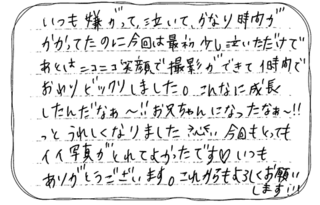 いつも嫌がって、泣いて、かなり時間が
かかってたのに今回は最初少し泣いただけで
あとはニコニコ笑顔で撮影ができて1時間で
おわりビックリしました。こんなに成長
したんだなぁ〜!!お兄ちゃんになったなぁ〜!!
っと うれしくなりました 今回もとっても
イイ写真がとれてよかったです♡いつも
ありがとうございます。これからもよろしくお願い
します!!!